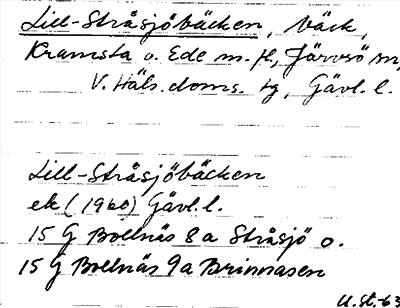 Lill-Stråsjöbäcken, bäck,
Kramsta o. Ede m. fl., Järvsö sn,
V. Häls. doms. tg, Gävl. l.
Lill-Stråsjöbäcken
ek (1960) Gävl. l.
15 G Bollnäs 8a Stråsjö o.
15 G Bollnäs 9a Brinnåsen
U. St.-63